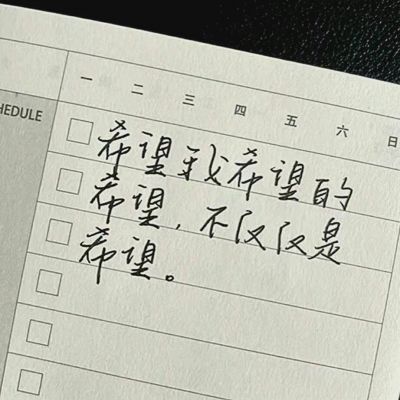 一 二 三 四 五 六 日
HEDULE
希望我希望的
希望，不仅仅是
希望。